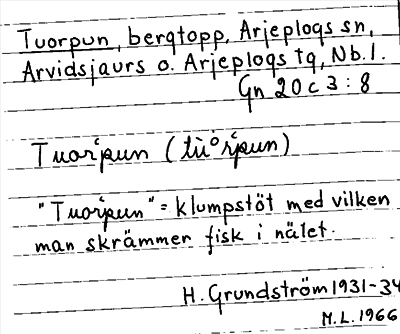 Tuorpun, bergtopp, Arjeplogs sn,
Arvidsjaurs o. Arjeplogs tg, Nb.l.
Gn 20 c 3 : 8
Tuorʹpun (tùºrʹpun)
"Tuorʹpun" = klumpstöt med vilken
man skrämmer fisk i nälet.
H. Grundström 1931-34
M.L. 1966